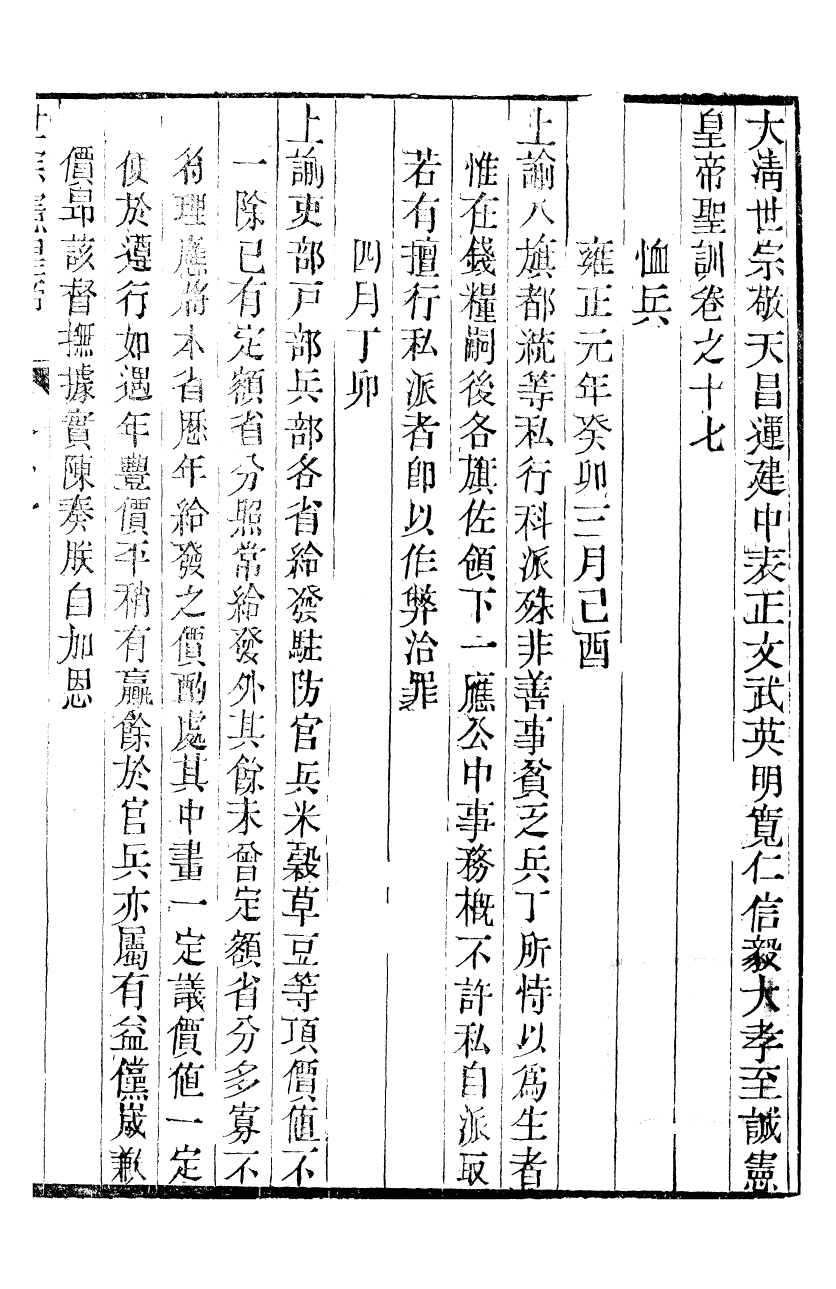 大淸世宗敬天昌運建中表正文武英明寬仁信毅大孝至誠憲
皇帝聖訓卷之十七
恤兵
雍正元年癸卯三月己酉
上諭八旗都統等私行科派殊非善事貧乏兵丁所恃以爲生者
惟在錢糧嗣後各旗佐領下一應公中事務槪不許私自派取
若有擅行私派者卽以作弊治罪
四月丁卯
上諭吏部戸部兵部各省給發駐防官兵米穀草豆等項價値不
一除已有定額省分照常給發外其餘未曾定額省分多寡不
符理應將本省歷年給發之價酌處其中畫一定議價値一定
便於遵行如遇年豐價平稍有贏餘於官兵亦屬有益儻歲歉
價昻該督撫據實陳奏朕自加恩